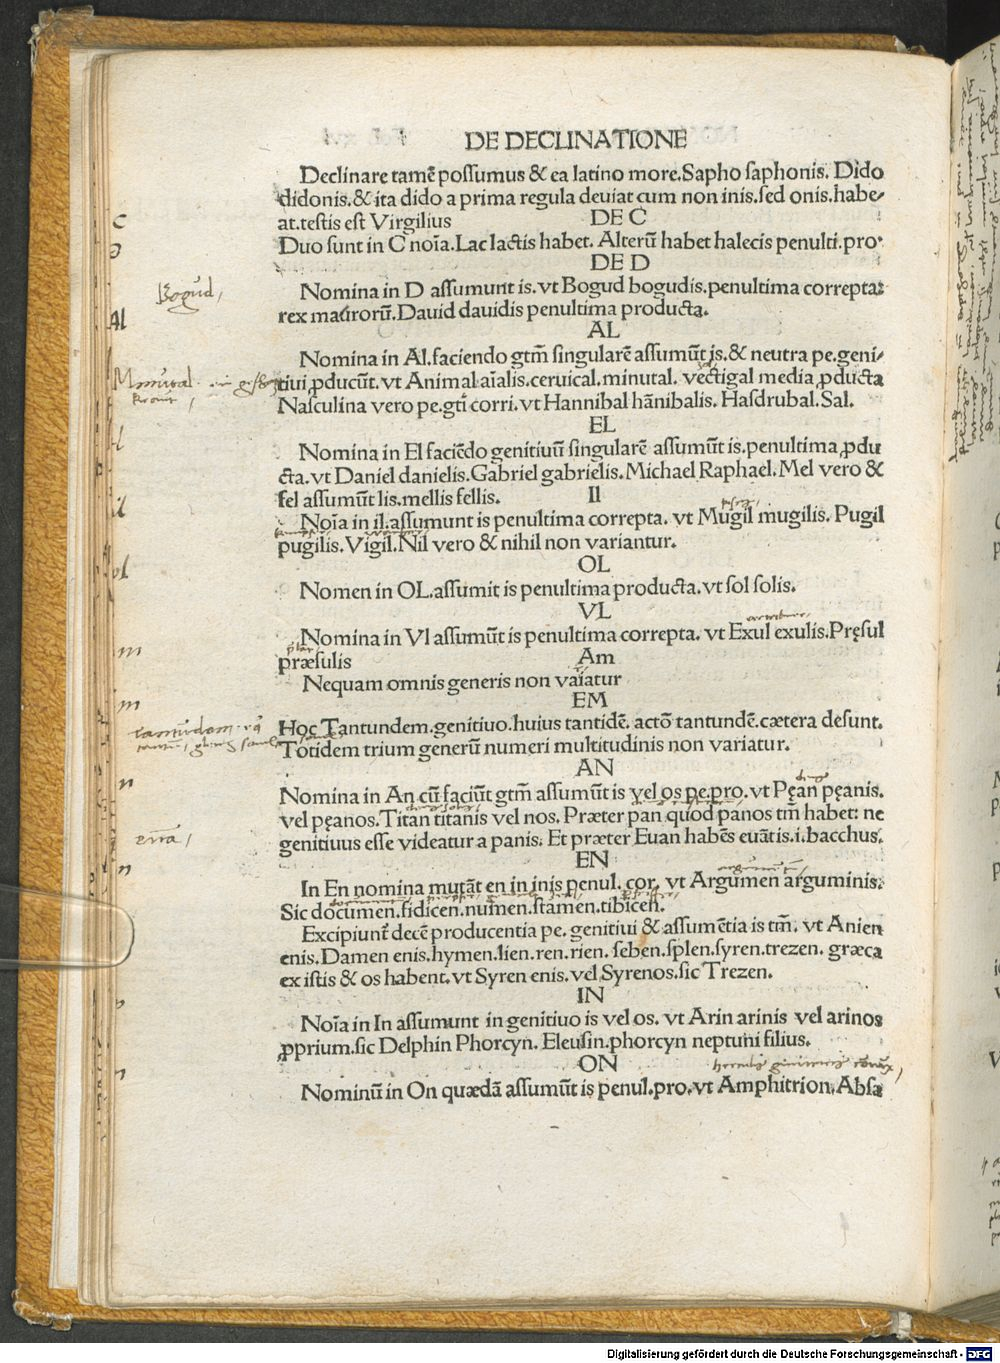 DE DECLINATIONE
Declinare tamē possumus & ea latino more. Sapho saphonis. Dido
didonis. & ita dido a prima regula deuiat cum non inis. sed onis. habe-
at. testis est Virgilius DE C
Duo sunt in C noīa. Lac lactis habet. Alterū habet halecis penulti. pro.
DE D
Nomina in D assumunt is. vt Bogud bogudis. penultima correpta:
rex maurorū. Dauid dauidis penultima producta.
AL
Nomina in Al. faciendo gtm̄ singularē assumūt is. & neutra pe. geni-
tiui ꝓducūt. vt Animal aīalis. ceruical. minutal. vectigal media ꝓducta
Nasculina vero pe. gtī corri. vt Hannibal hānibalis. Hasdrubal. Sal.
EL
Nomina in El faciēdo genitiuū singularē assumūt is. penultima ꝓdu
cta. vt Daniel danielis. Gabriel gabrielis. Michael Raphael. Mel vero &
fel assumūt lis. mellis fellis. Il
Noīa in il. assumunt is penultima correpta. vt Mugil mugilis. Pugil
pugilis. Vigil. Nil vero & nihil non variantur.
OL
Nomen in OL. assumit is penultima producta. vt sol solis.
VL
Nomina in Vl assumūt is penultima correpta. vt Exul exulis. Pręsul
præsulis Am
Nequam omnis generis non vaiatur
EM
Hoc Tantundem. genitiuo. huius tantidē. actō tantundē. cætera desunt.
Totidem trium generū numeri multitudinis non variatur.
AN
Nomina in An cū faciūt gtm̄ assumūt is vel os pe. pro. vt Pęan pęanis.
vel pęanos. Titan titanis vel nos. Præter pan quod panos tm̄ habet: ne
genitiuus esse videatur a panis. Et præter Euan habēs euātis. i. bacchus.
EN
In En nomina mutāt en in inis penul. cor. vt Argumen arguminis.
Sic documen. fidicen. numen. stamen. tibicen.
Excipiunt̄ decē producentia pe. genitiui & assumētia is tm̄. vt Anien
enis. Damen enis. hymen. lien. ren. rien. seben. splen. syren. trezen. græca
ex istis & os habent. vt Syren enis. vel Syrenos. sic Trezen.
IN
Noīa in In assumunt in genitiuo is vel os. vt Arin arinis vel arinos
ꝓprium. sic Delphin Phorcyn. Eleusin. phorcyn neptuni filius.
ON
Nominū in On quædā assumūt is penul. pro. vt Amphitrion. Absa
Bogud
Al
il
ol
m
m
n
n
Digitalisierung gefördert durch die Deutsche Forschungsgemeinschaft - DFG